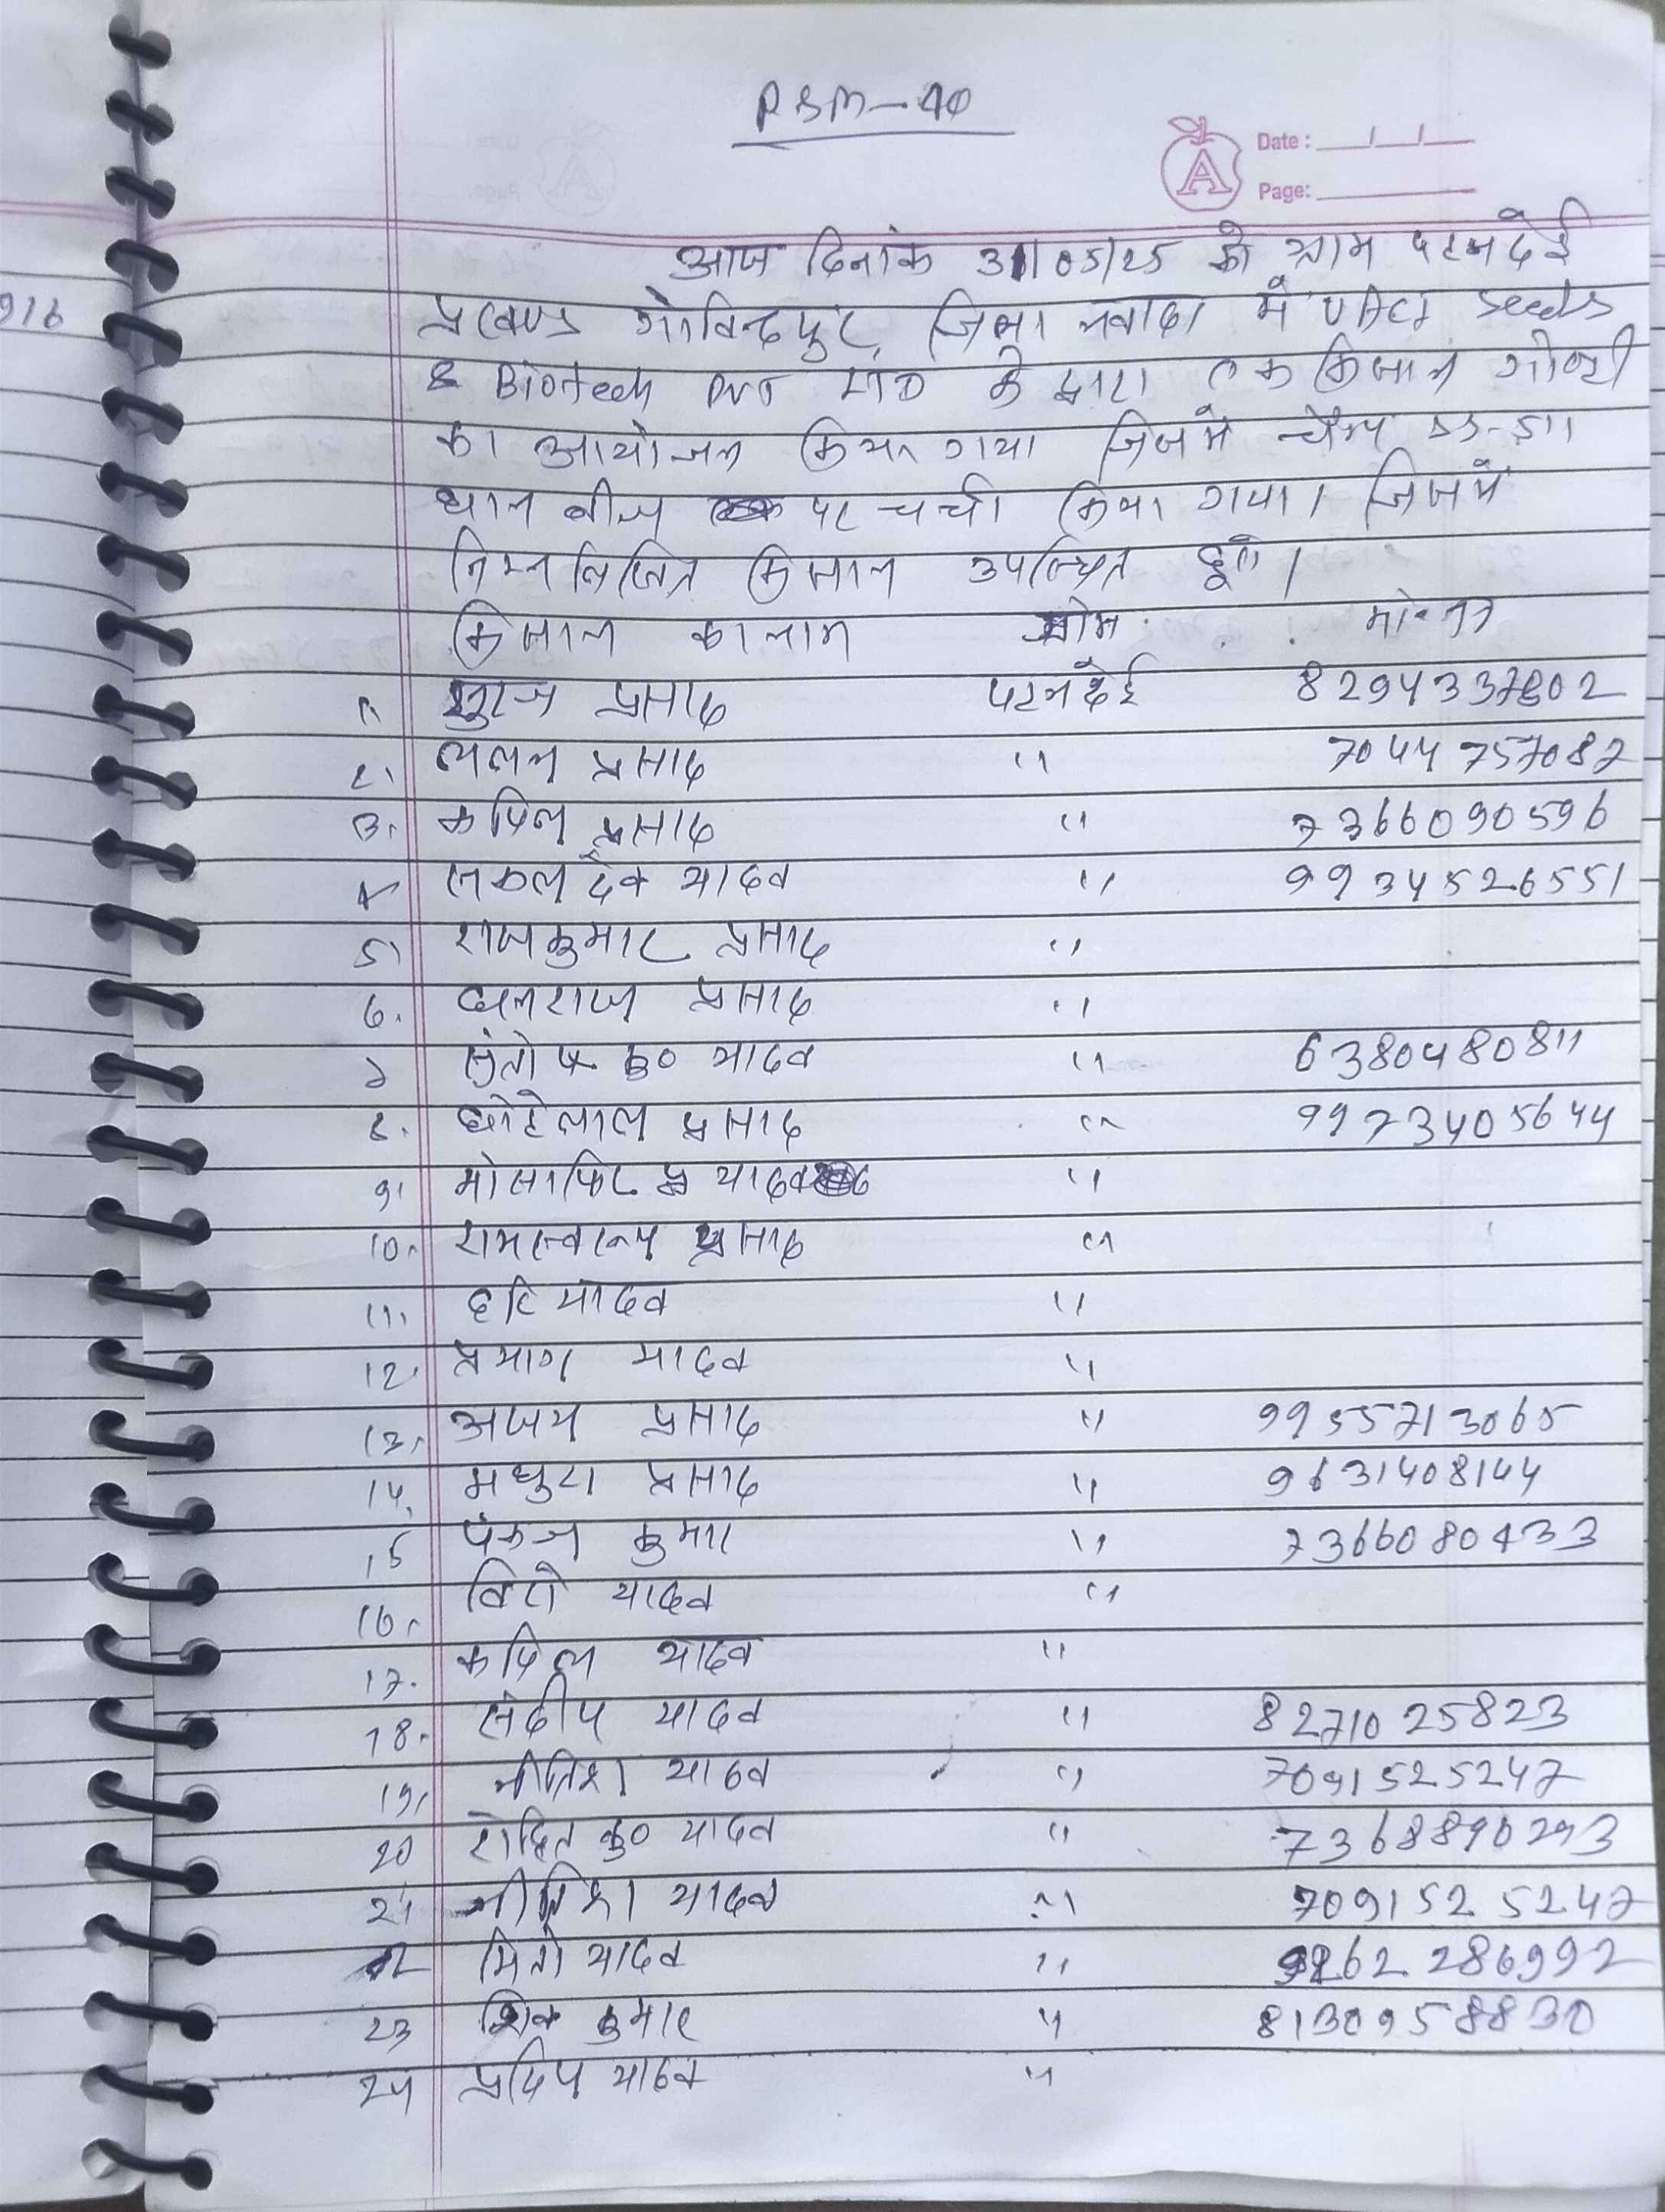 PSM-40
Date :
Page:
A
916
आज दिनांक 31/05/25 को ग्राम पटनदेई
प्रखण्ड गोविन्दपुर, जिला नवादा में Seeds
& Biotech PVT LTD के द्वारा एक किसान गोष्ठी
का आयोजन किया गया जिसमें चैम्प SS-511
धान बीज पर चर्चा किया गया। जिसमें
निम्नलिखित किसान उपस्थित हुए।
किसान का नाम ग्राम मो॰ नं
1. सुरज प्रसाद पटनदेई 8294337802
2. ललन प्रसाद " 7044757087
3. कपिल प्रसाद " 7366090596
4. सकलदेव यादव " 9934526551
5. राजकुमार प्रसाद "
6. धनराज प्रसाद "
7 संतोष कु० यादव " 6380480811
8. छोटेलाल प्रसाद " 9973405644
9. मोसाफिर यादव "
10. रामस्वरूप प्रसाद "
11. हरि यादव "
12. प्रयाग यादव "
13. अजय प्रसाद " 9955713065
14. मथुरा प्रसाद " 9631408144
15 पंकज कुमार " 7366080433
16. विरो यादव "
17. कपिल यादव "
18. संदीप यादव " 8271025823
19. नीतिश यादव " 7091525247
20 रोहित कु० यादव " 7368890293
21 नीतिश यादव " 7091525247
22 मितो यादव " 62286992
23 कुमार " 8130958830
24 प्रदिप यादव "